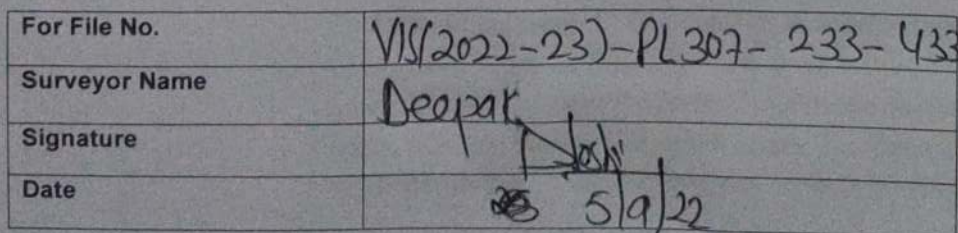 For File No. VIS(2022-23)-PL307-233-433
Surveyor Name Deepak
Signature DJoshi
Date 5/9/22